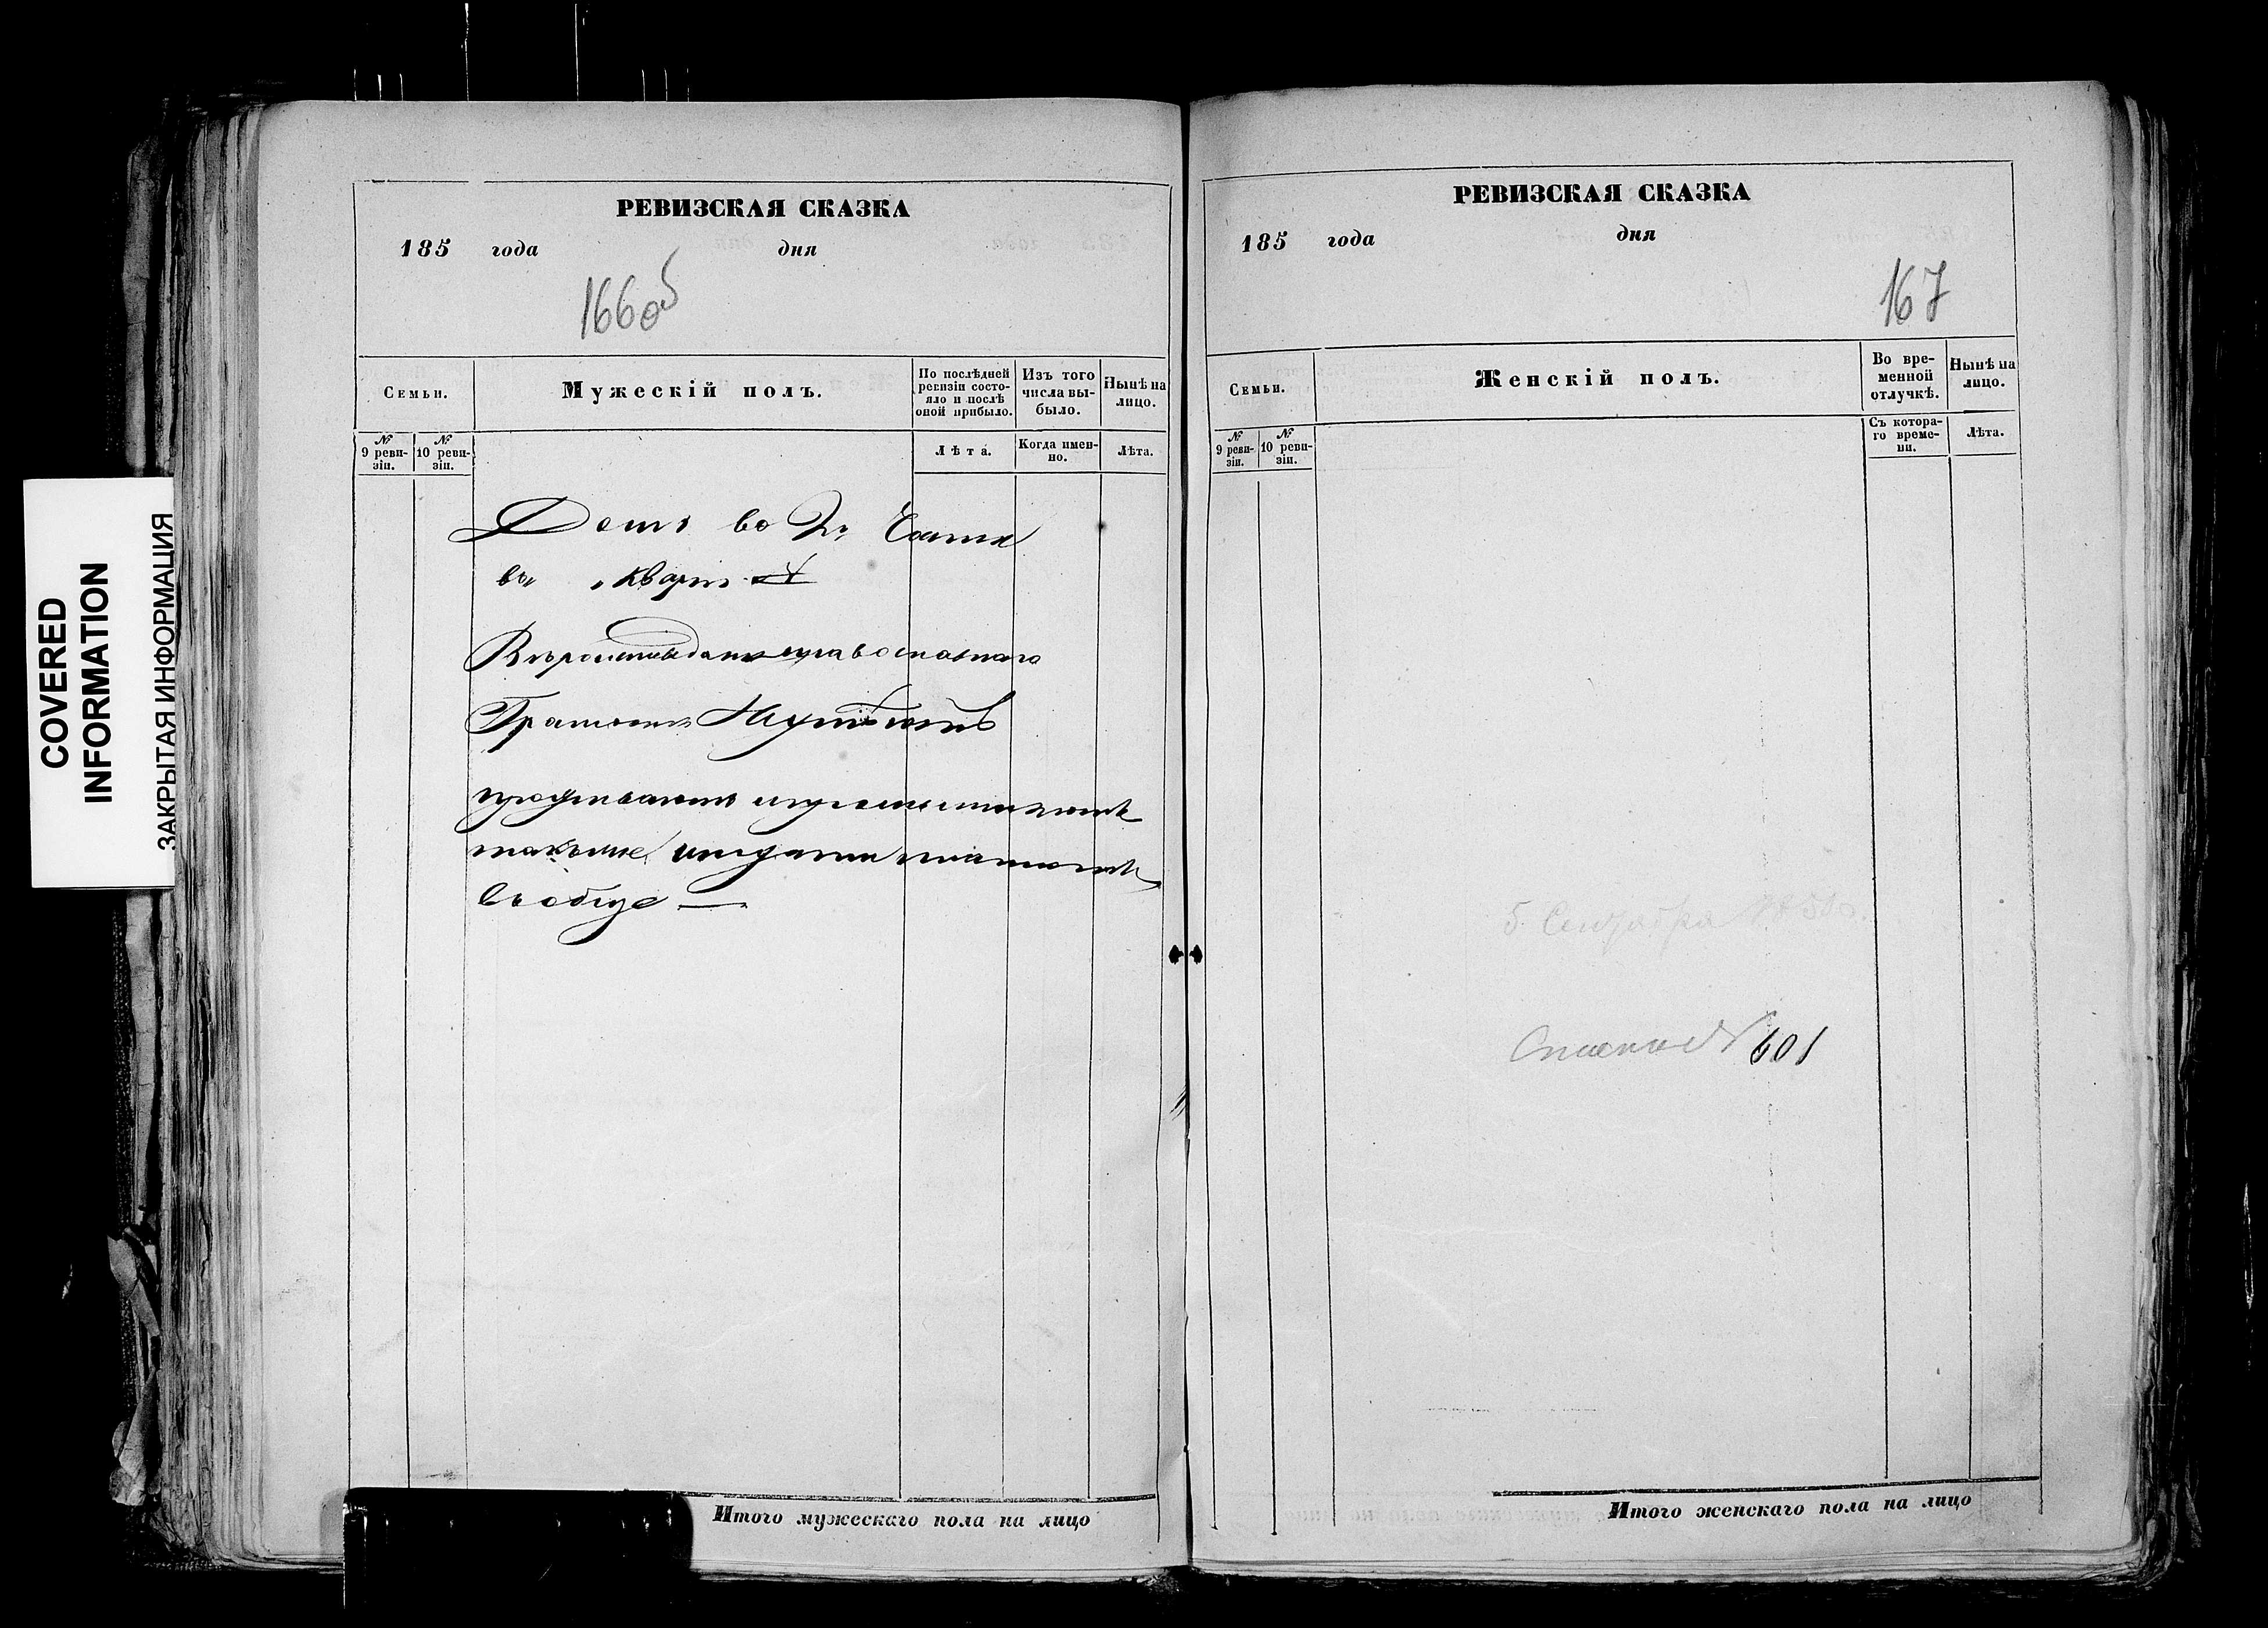 COVERED
INFORMATION
ЗАКРЫТАЯ ИНФОРМАЦИЯ
РЕВИЗСКАЯ СКАЗКА
185 года дня
166об
Семьи.
Мужескій полъ.
По послѣдней ревизіи состояло и послѣ оной прибыло.
Изъ того числа выбыло.
Нынѣ на лицо.
№ 9 ревизіи.
№ 10 ревизіи.
Лѣта.
Когда именно.
Лѣта.
Домъ во 2й Части
въ кварт. №
Вѣроисповѣданія православнаго
Грамотѣ
проживаютъ
также подати платятъ
въ обще —
Итого мужескаго пола на лицо
РЕВИЗСКАЯ СКАЗКА
185 года дня
167
Семьи.
Женскій полъ.
Во временной отлучкѣ.
Нынѣ на лицо.
№ 9 ревизіи.
№ 10 ревизіи.
Съ котораго времени.
Лѣта.
5 Сентября
№ 601
Итого женскаго пола на лицо